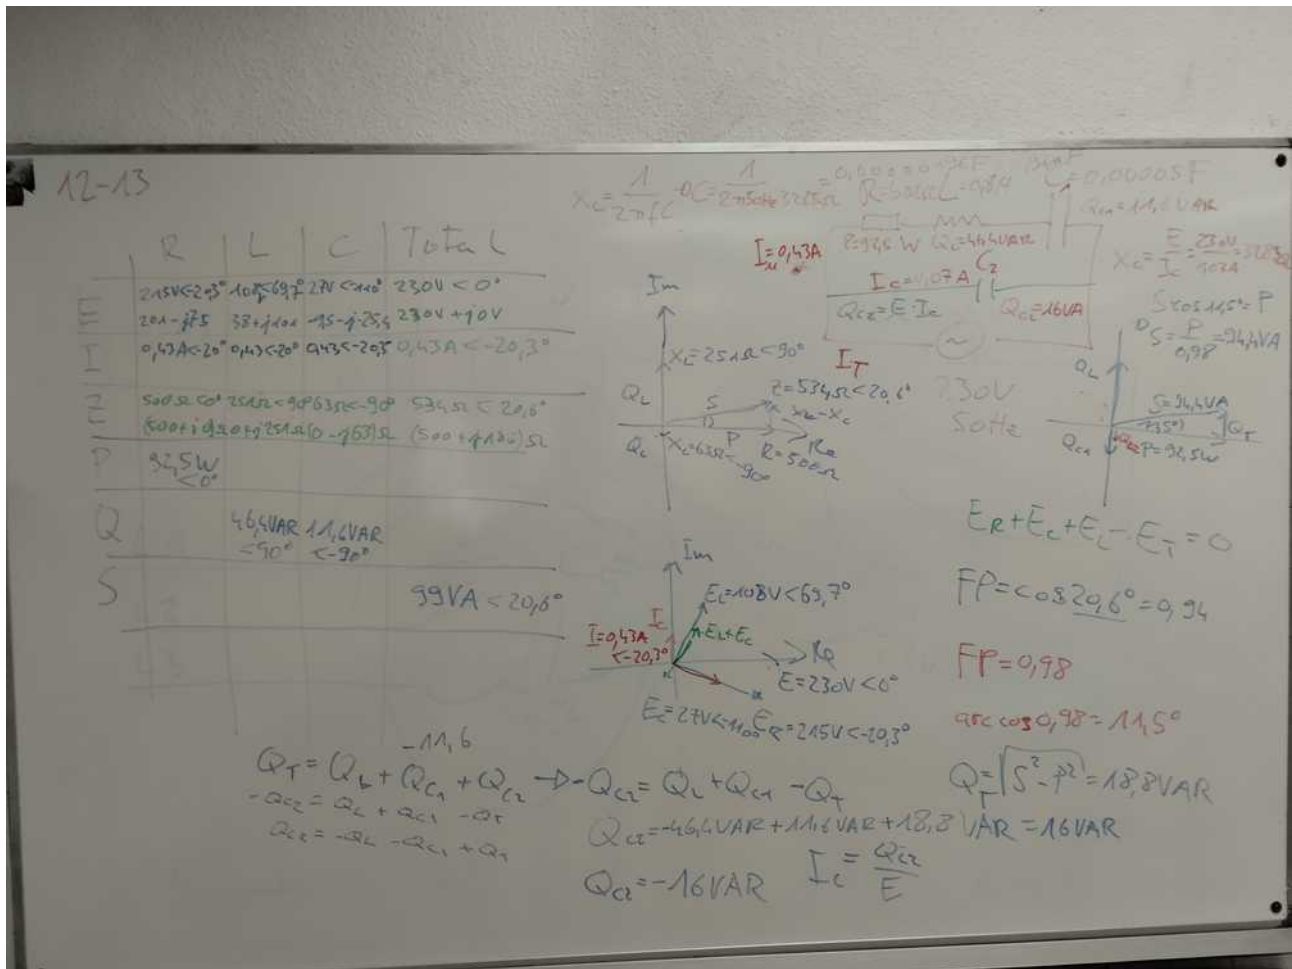 12-13
R L C Total
E 215V<-20,3° 108V<69,7° 27V<-110° 230V<0°
201-j75 38+j101 230V+j0V
I 0,43A<-20° 0,43<-20° 0,43<-20,3° 0,43A<-20,3°
Z 500Ω<0° 251Ω<90° 63Ω<-90° 534Ω<20,6°
0+j251Ω (0-j63)Ω
P 92,5W
<0°
Q 46,4VAR 11,6VAR
<90° <-90°
S 99VA<20,6°
Xc=1/2πfC
C=0,00005F
Qc1=11,6VAR
P=92,5W QL=46,4VAR
I=0,43A
C2
Ic=0,07A
Qc2=E·Ic Qc2=16VA
IT
230V
50Hz
Xc=E/Ic
S·cos11,5°=P
S=P/0,98=94,4VA
Im
XL=251Ω<90°
Z=534Ω<20,6°
XL-Xc
QL
S
P
Re
Qc
Xc=63Ω<-90°
R=500Ω
QL
S=94,4VA
QT
Qc1
Qc2
P=92,5W
ER+Ec+EL-ET=0
FP=cos20,6°=0,94
FP=0,98
arc cos0,98=11,5°
QT=√S²-P²=18,8VAR
Im
EL=108V<69,7°
Ic
EL+Ec
I=0,43A
<-20,3°
Re
E=230V<0°
Ec=27V<-110°
ER=215V<-20,3°
-11,6
QT=QL+Qc1+Qc2→-Qc2=QL+Qc1-QT
-Qc2=QL+Qc1-QT
Qc2=-QL-Qc1+QT
Qc2=-46,4VAR+11,6VAR+18,8VAR=16VAR
Qc2=-16VAR Ic=Qc2/E